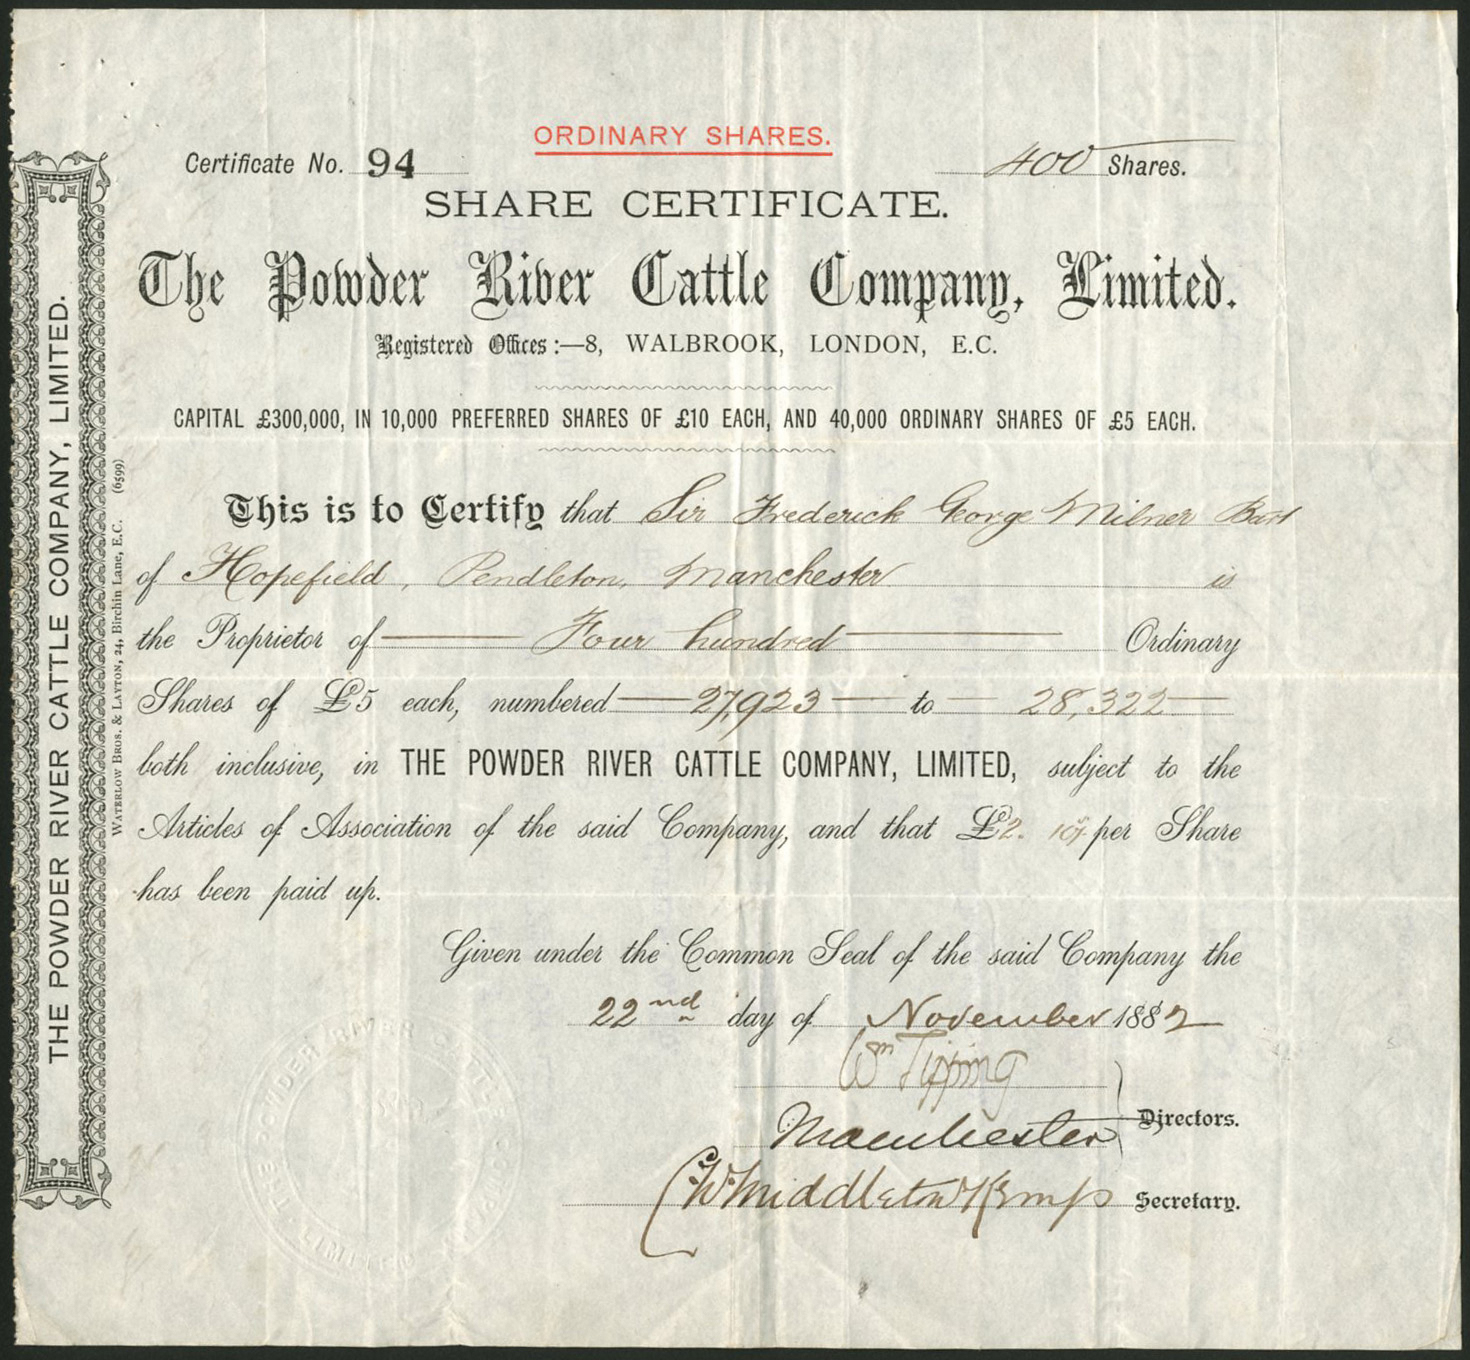 ORDINARY SHARES.
Certificate No. 94
400 Shares.
SHARE CERTIFICATE.
The Powder River Cattle Company, Limited.
Registered Offices :—8, WALBROOK, LONDON, E.C.
CAPITAL £300,000, IN 10,000 PREFERRED SHARES OF £10 EACH, AND 40,000 ORDINARY SHARES OF £5 EACH.
This is to Certify that Sir Frederick George Milner Bart
of Hopefield, Pendleton, Manchester is
the Proprietor of — Four hundred — Ordinary
Shares of £5 each, numbered — 27,923 — to — 28,322 —
both inclusive, in THE POWDER RIVER CATTLE COMPANY, LIMITED, subject to the
Articles of Association of the said Company, and that £2. 10/ per Share
has been paid up.
Given under the Common Seal of the said Company the
22nd day of November 1882
Wm Tipping
Manchester
Directors.
W Middleton Kemp Secretary.
THE POWDER RIVER CATTLE COMPANY, LIMITED.
WATERLOW BROS. & LAYTON, 24, Birchin Lane, E.C. (6599)
THE POWDER RIVER CATTLE CO
LIMITED